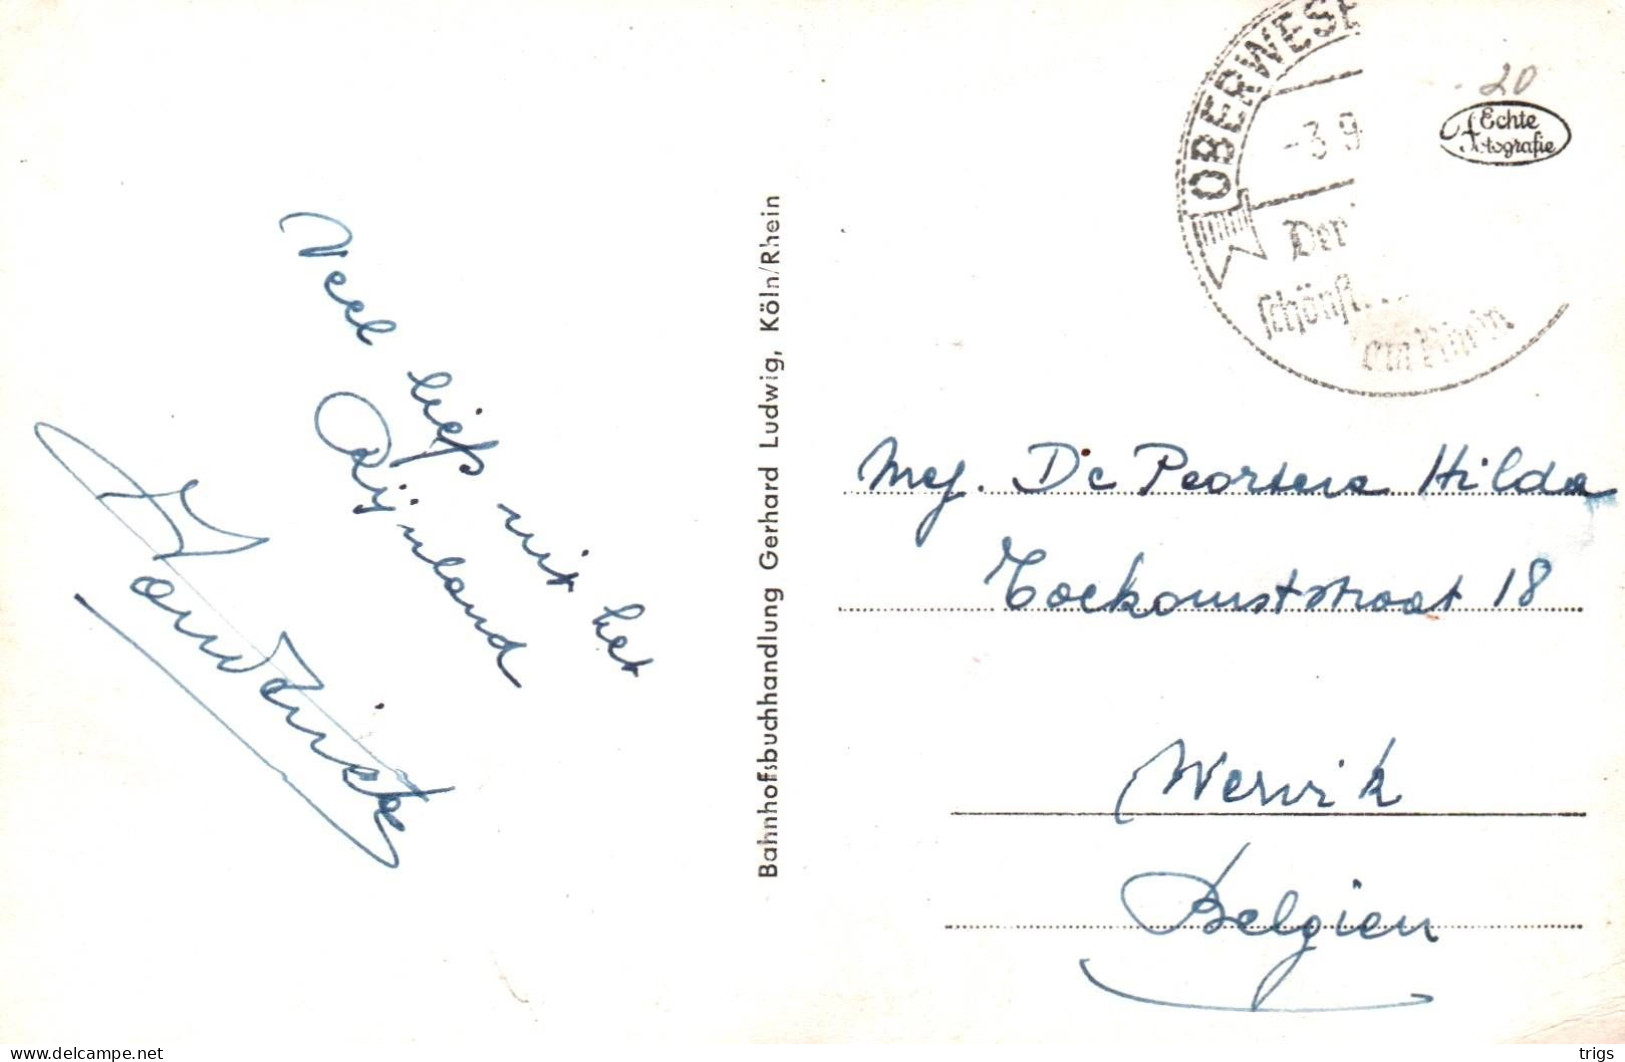 Veel liefs uit het
Rijnland
Bahnhofsbuchhandlung Gerhard Ludwig, Köln/Rhein
OBERWESE
-3.9
Der
schönst
am Rhein
-20
Echte
fotografie
Mej. De Peortere Hilda
Toekomststraat 18
Wervik
Belgien
delcampe.net
trigs